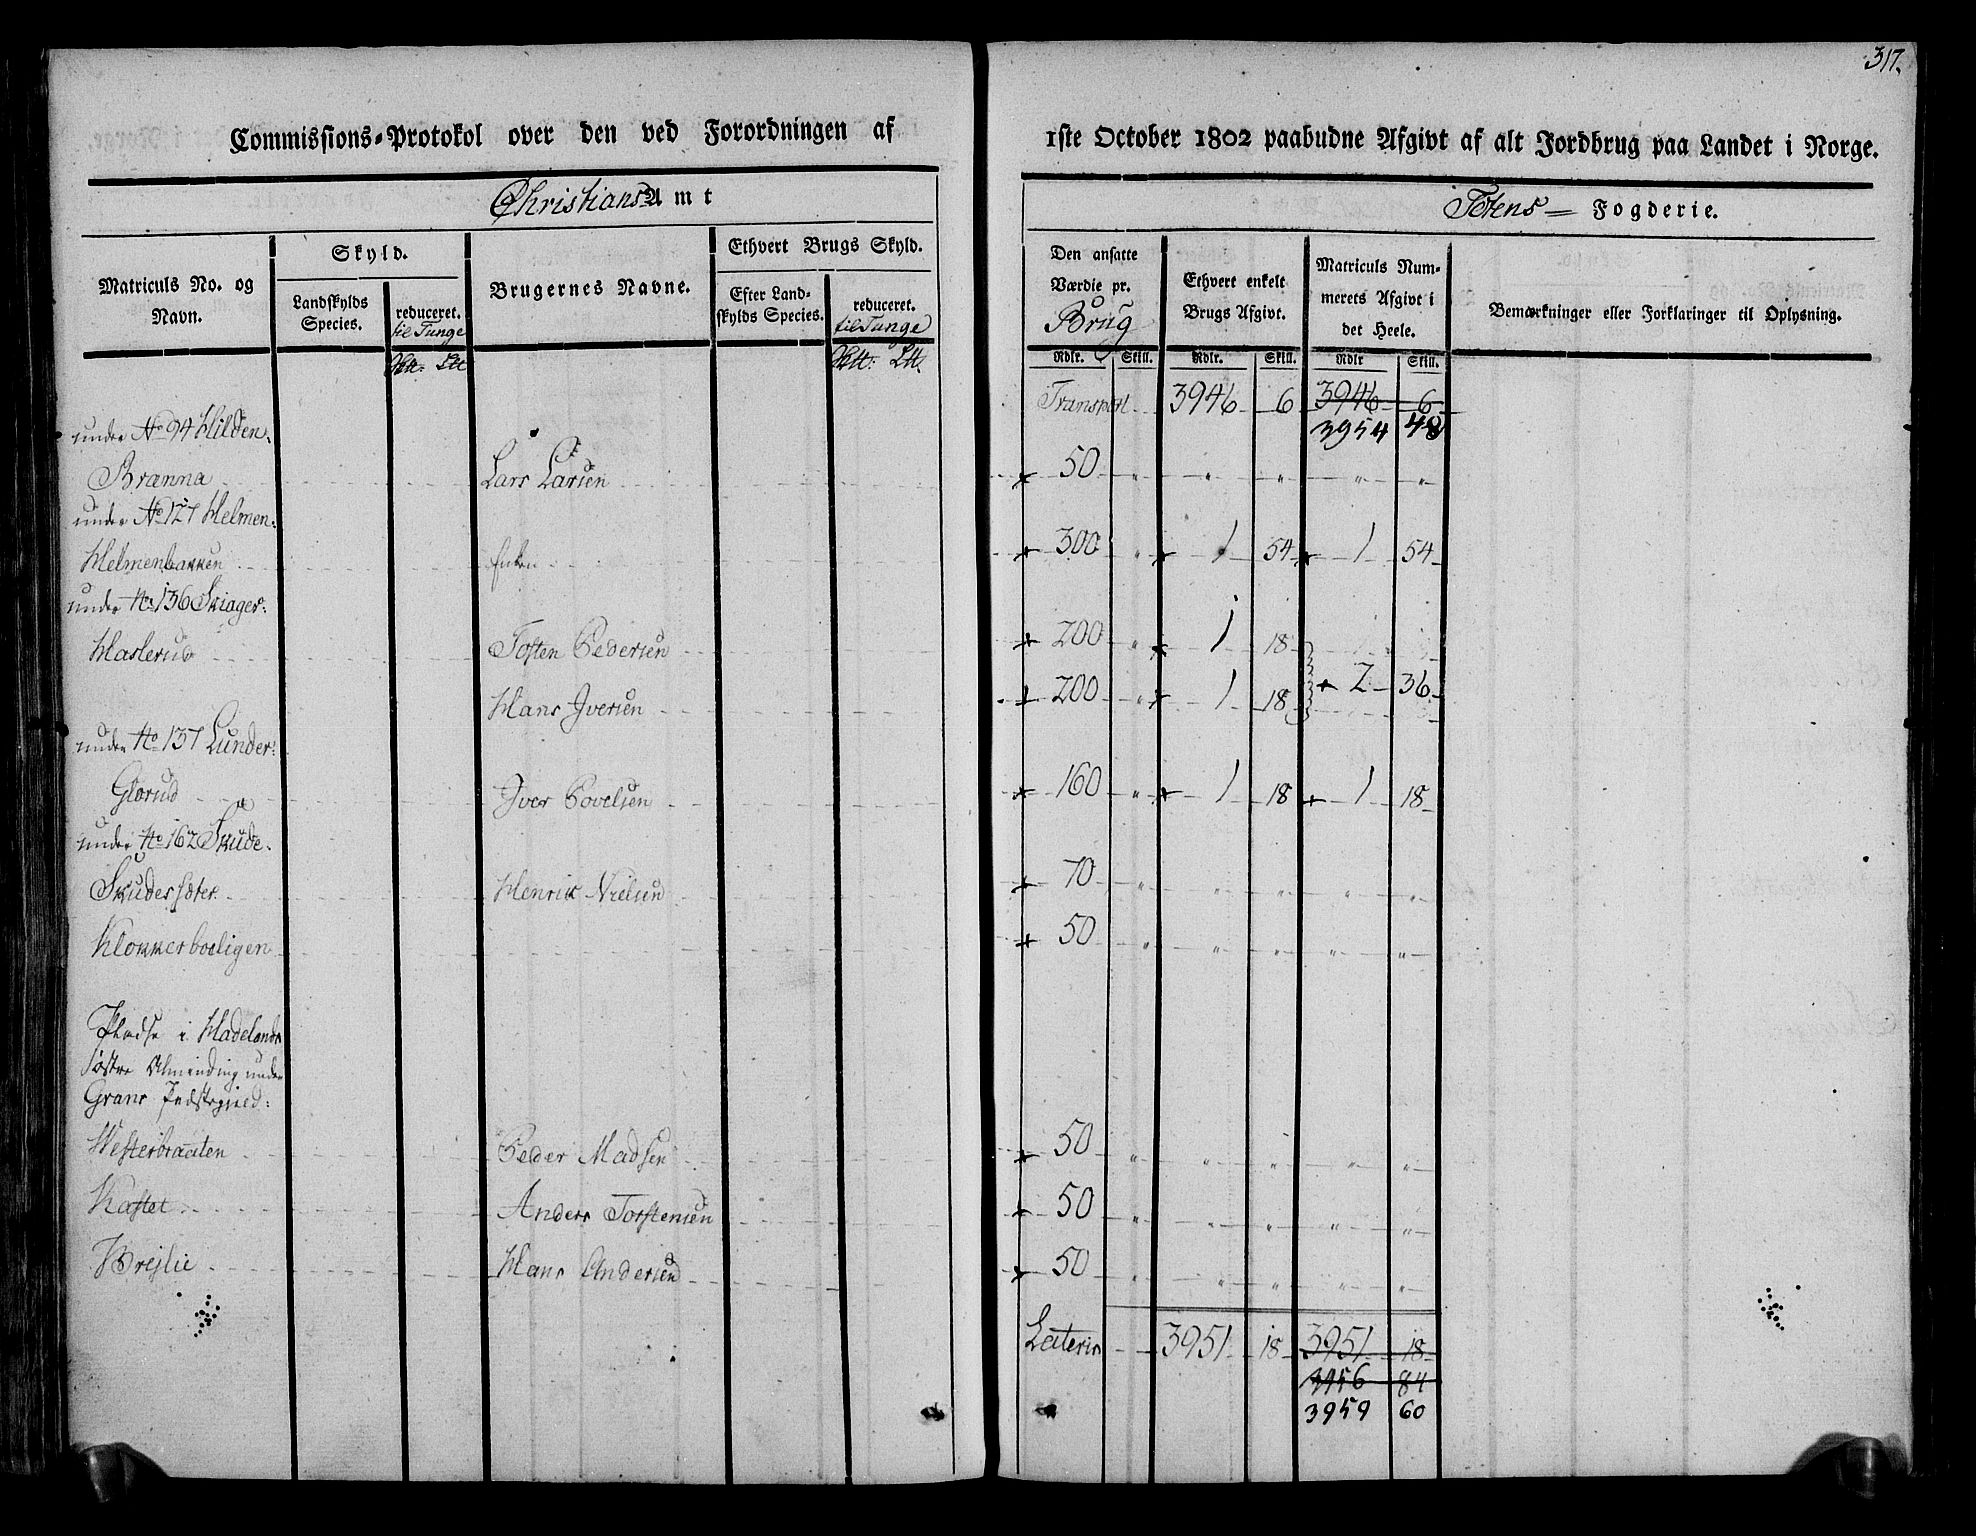 317.
Commissions-Protokol over den ved Forordningen af 1ste October 1802 paabudne Afgivt af alt Jordbrug paa Landet i Norge.
Christians Amt
Totens Fogderie.
Matriculs No. og Navn.
Skyld.
Landskylds Species.
reduceret. til Tunge
Brugernes Navne.
Ethvert Brugs Skyld.
Efter Landskylds Species.
reduceret. til Tunge
Den ansatte Værdie pr. Brug
Ethvert enkelt Brugs Afgivt.
Matriculs Nummerets Afgivt i det Heele.
Bemærkninger eller Forklaringer til Oplysning.
Rdlr. Skill. Rdlr. Skill. Rdlr Skill.
Transport 3946 6 3946 6
3954 48
under No 94 Hilden.
Brænna Lars Larsen 50 " " " " "
under No 127 Helmen.
Helmenbakken Enken 300 " 1 54 1 54
under No 136 Skiager:
Haslerud Tosten Pedersen 200 " 1 18
Hans Iversen 200 " 1 18 2 36
under No 137 Lunder:
Glorud Iver Povelsen 160 " 1 18 1 18
under No 162 Skude.
Skudessæter Henrik Nielsen 70 " " " " "
Klokkerboeligen 50 " " " " "
Pladse i Hadelands
østre Almending under
Grans Præstegield:
Westerbraaten Peder Madsen 50 " " " " "
Kastet Anders Torstensen 50 " " " " "
Wrejlie Hans Andersen 50 " " " " "
Lateris 3951 18 3951 18
3956 84
3959 60